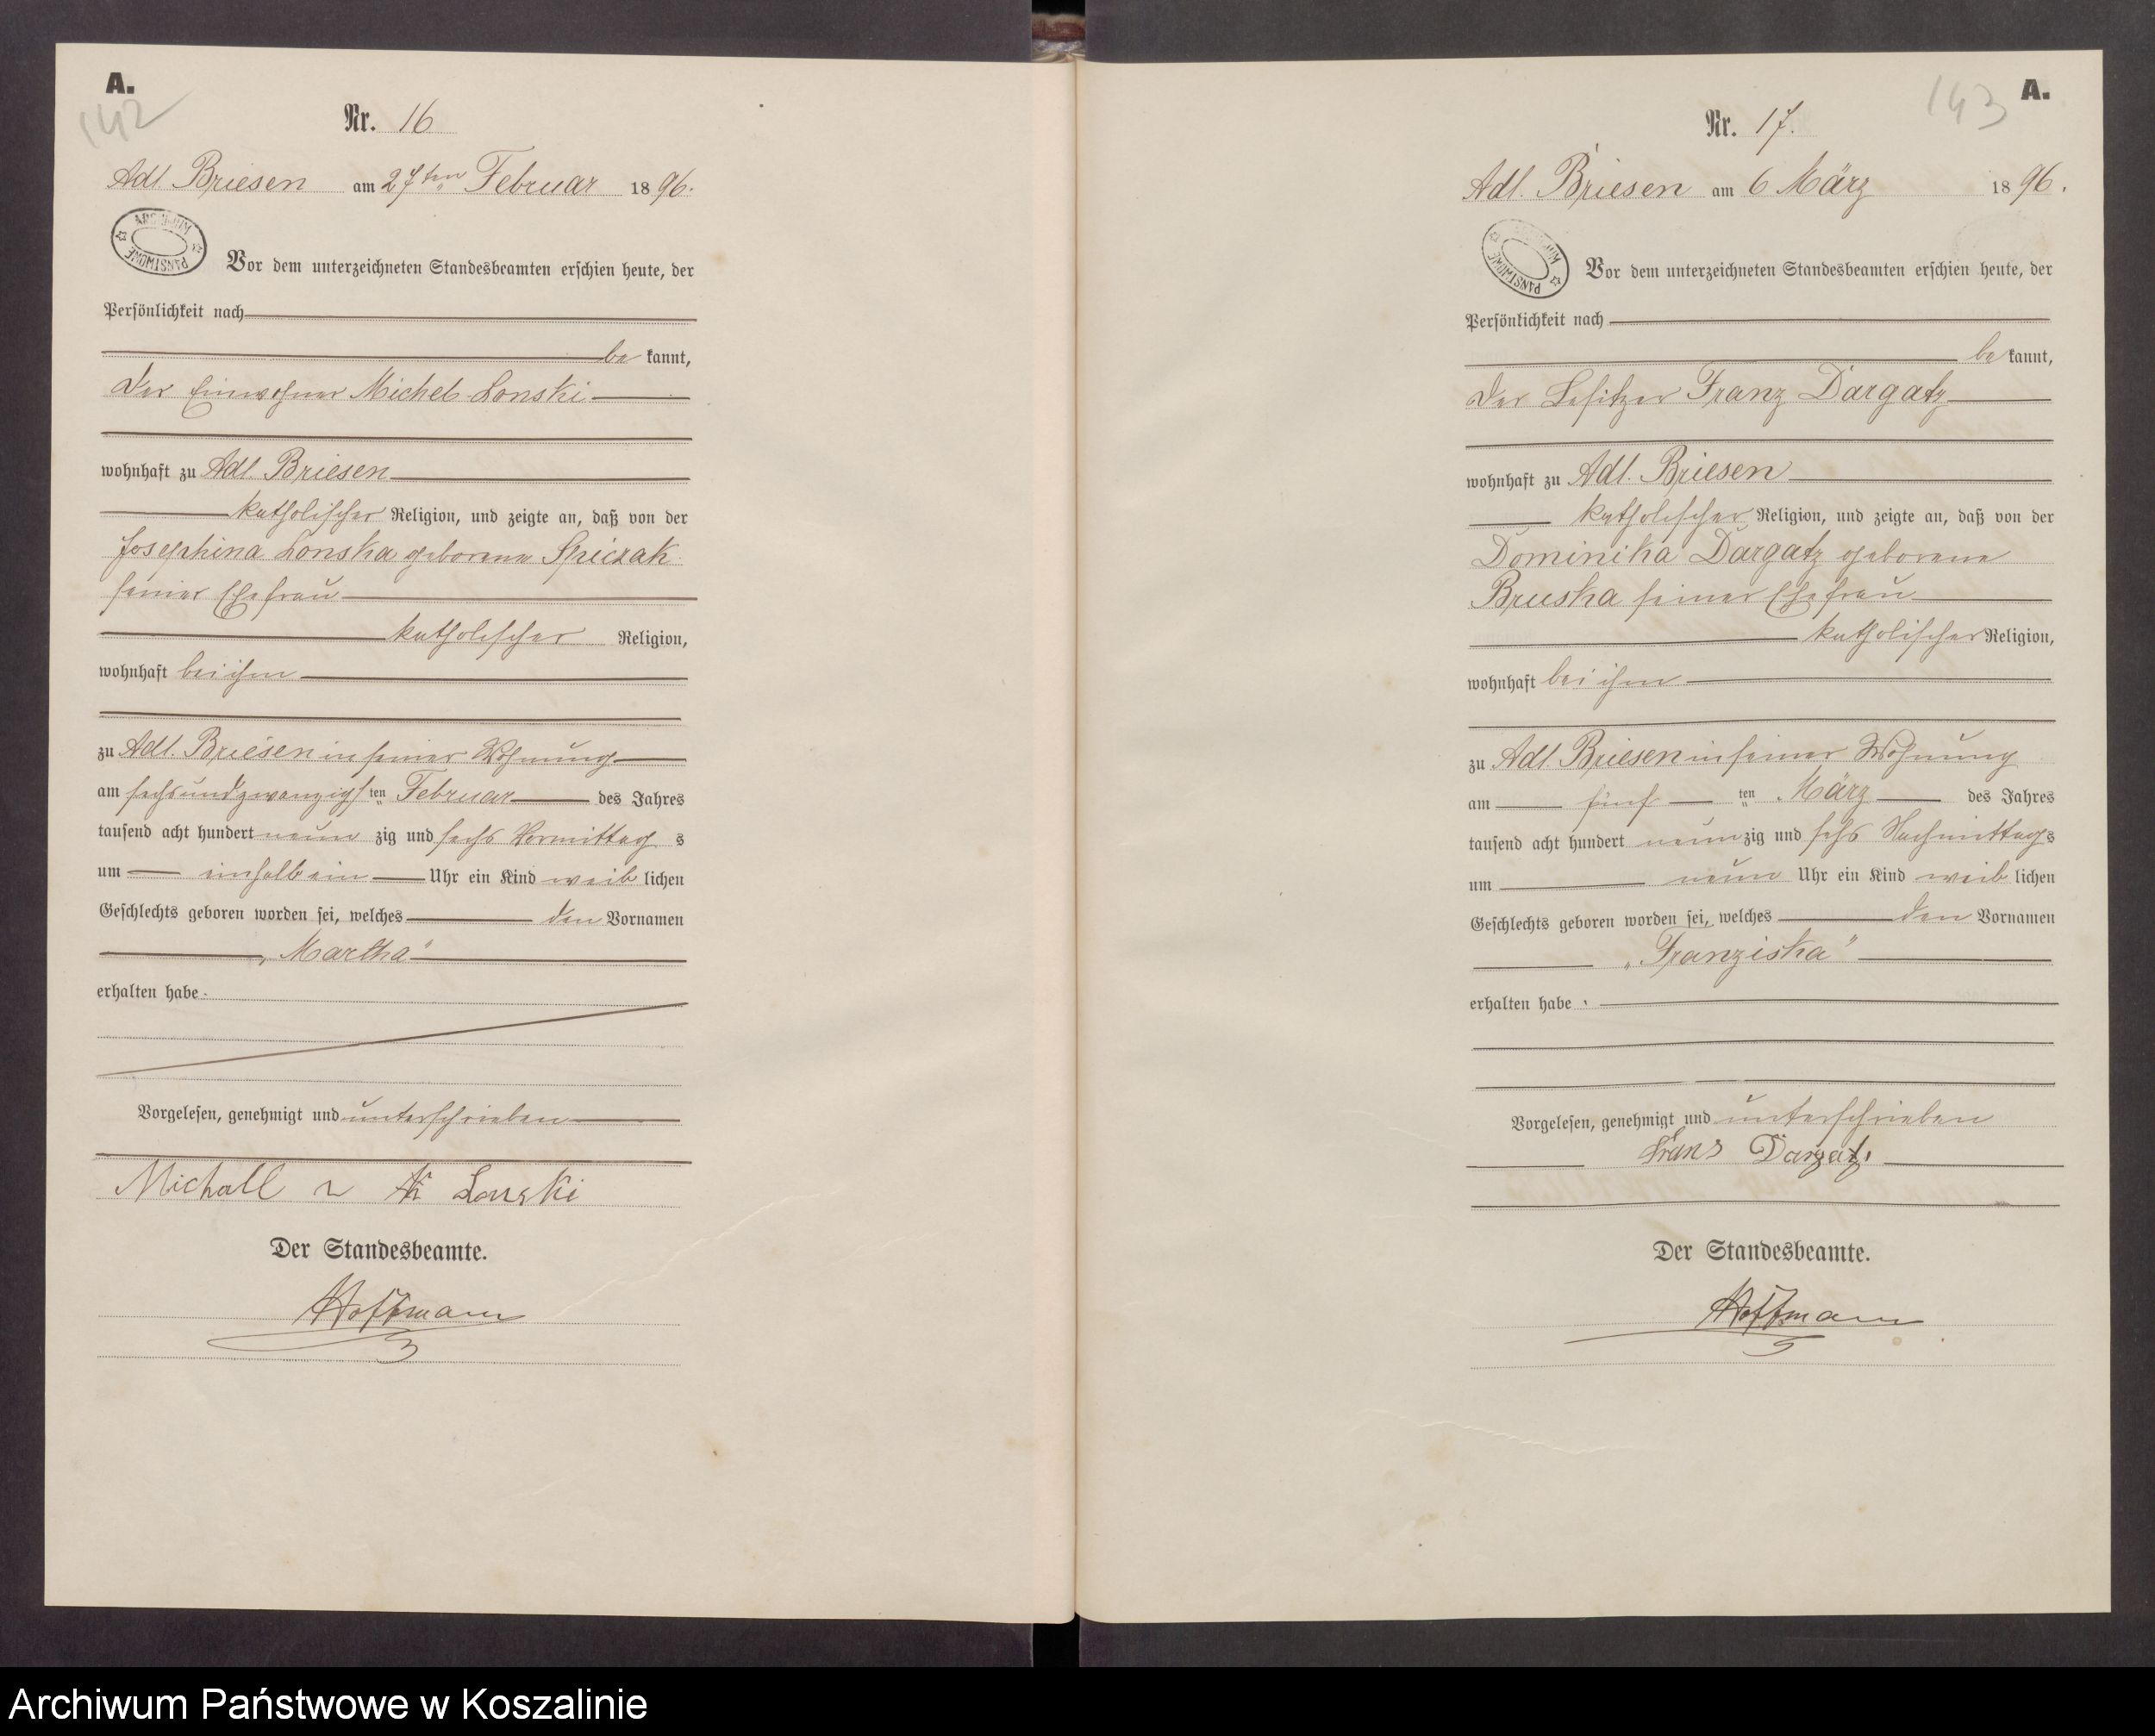 A.
142
Nr. 16
Adl. Briesen am 27ten Februar 1896.
ARCHIWUM PAŃSTWOWE
Vor dem unterzeichneten Standesbeamten erschien heute, der
Persönlichkeit nach
be kannt,
der Einwohner Michel Lonski
wohnhaft zu Adl. Briesen
katholischer Religion, und zeigte an, daß von der
Josephina Lonska geborene Spiczak
seiner Ehefrau
katholischer Religion,
wohnhaft bei ihm
zu Adl. Briesen in seiner Wohnung
am sechsundzwanzigsten Februar des Jahres
tausend acht hundert neun zig und sechs Vormittag s
um einhalb ein Uhr ein Kind weib lichen
Geschlechts geboren worden sei, welches den Vornamen
„Martha“
erhalten habe.
Vorgelesen, genehmigt und unterschrieben
Michall Lonski
Der Standesbeamte.
Hoffmann
143
A.
Nr. 17.
Adl. Briesen am 6 März 1896.
ARCHIWUM PAŃSTWOWE
Vor dem unterzeichneten Standesbeamten erschien heute, der
Persönlichkeit nach
be kannt,
der Besitzer Franz Dargatz
wohnhaft zu Adl. Briesen
katholischer Religion, und zeigte an, daß von der
Dominika Dargatz geborene
Bruska seiner Ehefrau
katholischer Religion,
wohnhaft bei ihm
zu Adl Briesen in seiner Wohnung
am fünf ten März des Jahres
tausend acht hundert neun zig und sechs Nachmittags
um neun Uhr ein Kind weib lichen
Geschlechts geboren worden sei, welches den Vornamen
„Franziska“
erhalten habe.
Vorgelesen, genehmigt und unterschrieben
Frans Dargatz.
Der Standesbeamte.
Hoffmann
Archiwum Państwowe w Koszalinie